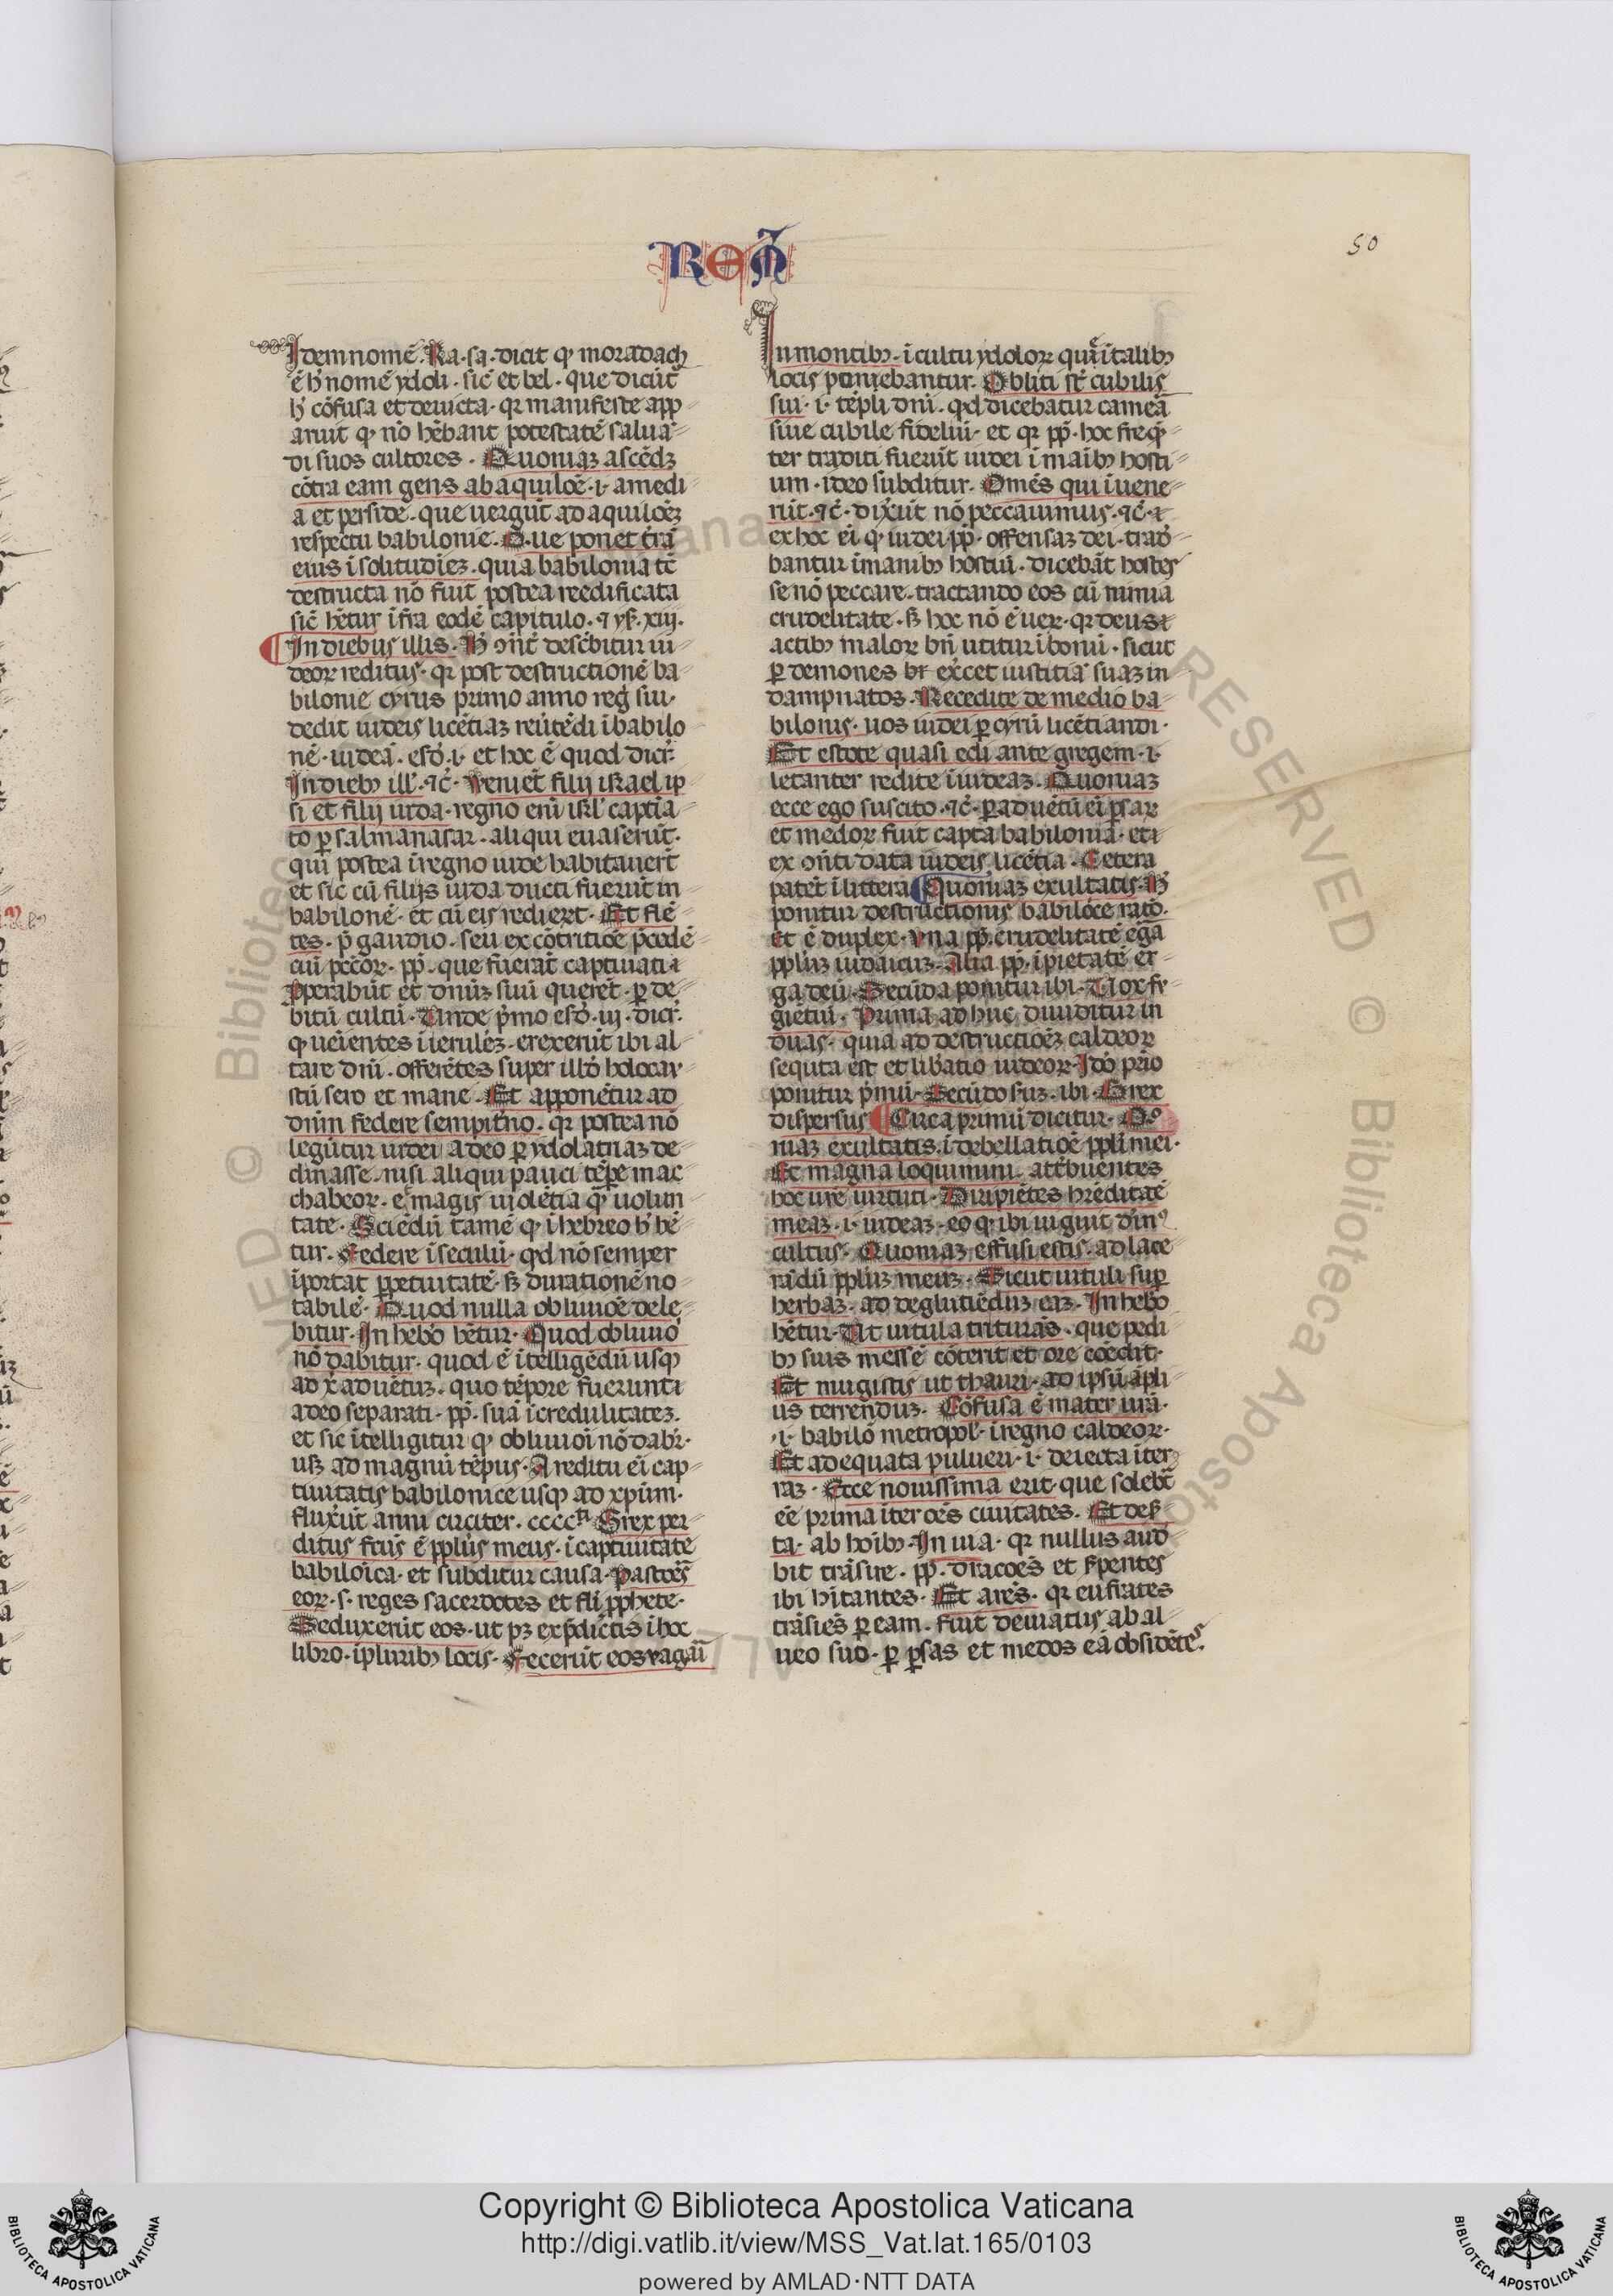 50
Idem nomē. Ra. sa. dicit qͥ moradach
ē h' nomē ydoli. sic̄ et bel. que dicūt᷑
h' cōfusa et deuicta. qꝛ manifeste app
aruit qͥ nō hēbant potestatē salua
di suos cultores. Quoniaꝫ ascēdꝫ
cōtra eam gens ab aquilōe. i. a medi
a et perside. que uergūt ad aquilōeꝫ
respectu babilonie. Que ponet t̄rā
eius ī solitudīeꝫ. quia babilonia tc̄
destructa nō fuit postea reedificata
sic̄ hētur īfra eodē capitulo. ⁊ ys. xiij.
In diebus illis. descbitur iu
deoꝝ reditus. qꝛ post destructionē ba
bilonie cyrus primo anno reḡ sui.
dedit iudeis licētiaꝫ reūtēdi ī babilo
nē. iudeā. esd̄. i. et hoc ē quod dicr̄.
In diebꝫ ill'. ⁊c̄. Ueniēt filij israel ip
si et filij iuda. regno enī isrl' captia
to ꝑ salmanasar. aliqui euaserūt.
qui postea ī regno iude habitauerūt
et sic cū filijs iuda ducti fuerūt in
babilonē. et cū eis redierūt. Et flē
tes. p̄ gaudio. seu ex cōtritiōe p̄cedē
cū pccōꝝ. pp̄. que fuerāt captiuati ⁊
ꝓperabūt et dnūꝫ suū querēt. ꝑ de
bitū cultū. Unde p̄mo esd̄. iij. dicr̄.
qͥ ueientes ī ierl'eꝫ. erexerūt ibi al
tare dnī. offerētes super illd̄ holocau
stū sero et mane. Et apponētur ad
dnīm federe sempit̄no. qꝛ postea nō
legūtur iudei a deo ꝑ ydolatriaꝫ de
clinasse. nisi aliqui pauci tēpe mac
chabeoꝝ. ex magis uiolētia qͣ uolun
tate. Sciēdū tamē qͥ ī hebreo h' hē
tur. Federe ī seculū. qd nō semper
īportat ꝑpetuitatē. sꝫ durationē no
tabilē. Quod nulla obliuiōe dele
bitur. In hebō hētur. Quod obliuio
nō dabitur. quod ē ītelligēdū usqꝫ
ad x̄ aduētuꝫ. quo tēpore fuerunt ⁊
a deo separati. pp̄. suā īcredulitateꝫ.
et sic ītelligitur qͥ obliuiōi nō dabr̄.
usꝫ ad magnū tēpus. A reditu eī cap
tiuitatis babilonice usqꝫ ad xp̄um.
fluxerūt anni circiter. cccc. Grex per
ditus fc̄us ē ppl'us meus. ī captiuitate
babiloīca. et subditur causa. Pastōes
eoꝝ. s. reges sacerdotes et fl'i ꝓphete.
Seduxerūt eos. ut pꝫ ex p̄dictis ī hoc
libro. ī pluribꝫ locis. Fecerūt eos uagari
In montibꝫ. ī cultu ydoloꝝ quī ī talibꝫ
locis ponebantur. Obliti sūt cubilis
sui. i. tēpli dnī. qd dicebatur camerā
siue cubile fideliū. et qꝛ pp̄. hoc freqn̄
ter traditi fuerūt iudei ī manibꝫ hosti
um. ideo subditur. Om̄es qui īuene
rūt. ⁊c̄. dixerūt nō peccauimus. ⁊c̄. ⁊
ex hoc eī qͥ iudei. pp̄. offensaꝫ dei. trade
bantur ī manibꝫ hostiū. dicebāt hostes
se nō peccare. tractando eos cū nimia
crudelitate. sꝫ hoc nō ē ueꝝ. qꝛ deus ⁊
actibꝫ maloꝝ bn̄ utitur ī bonū. sicut
ꝑ demones excet iustitiā suaꝫ in
dampnatos. Recedite de medio ba
bilonis. uos iudei ꝑ cyrū licētiandi.
Et estote quasi edi ante gregem. i.
letanter redite ī iudeaꝫ. Quoniaꝫ
ecce ego suscito. ⁊c̄. ꝑ aduētū eī ꝑsaꝝ
et medoꝝ fuit capta babilonia. et ⁊
ex data iudeis licētia. Cetera
patēt ī littera. Quoniaꝫ exultatis.
ponitur destructionis babilōce ratō.
et ē duplex. Una pp̄. crudelitatē ergā
ppl'uꝫ iudaicuꝫ. Alia pp̄. īpietatē er
ga deū. Secūda ponitur ibi. Uox fu
giētiū. Prima adhuc diuiditur in
duas. quia ad destructiōeꝫ caldeoꝝ
sequta est et lib̄atio iudeoꝝ. Idō prīo
ponitur p̄mū. Secūdo suꝫ. ibi. Grex
dispersus. Circa primū dicitur. Qo
niaꝫ exultatis. ī debellatiōe ppl'i mei.
Et magna loquimini. att̄buentes
hoc ur̄e uirtuti. Diripiētes hr̄editatē
meaꝫ. i. iudeaꝫ. eo qͥ ibi uiguit diuinꝰ
cultus. Quoniaꝫ effusi estis. ad lace
randū ppl'uꝫ meuꝫ. Sicut uituli suꝑ
herbaꝫ. ad deglutiēduꝫ eaꝫ. In hebō
hētur. Ut uitula triturās. que pedi
bꝫ suis messē cōterit et ore comedit.
Et mugistis ut thauri. ad ipsū ampli
us terrenduꝫ. Cōfusa ē mater ur̄a.
.i. babilō metropol'. ī regno caldeoꝝ.
Et adequata pulueri. i. deiecta ī ter
raꝫ. Ecce nouissima erit. que solebat
eē prima īter ōes ciuitates. Et deser
ta. ab hoībꝫ. In uia. qꝛ nullus aude
bit trāsire. pp̄. dracōes et s̄pentes
ibi hītantes. Et arēs. qꝛ eufrates
trāsiēs ꝑ eam. fuit deriuatus ab al
ueo suo. ꝑ ꝑsas et medos eā obsidētes.
Copyright © Biblioteca Apostolica Vaticana
http://digi.vatlib.it/view/MSS_Vat.lat.165/0103
powered by AMLAD·NTT DATA